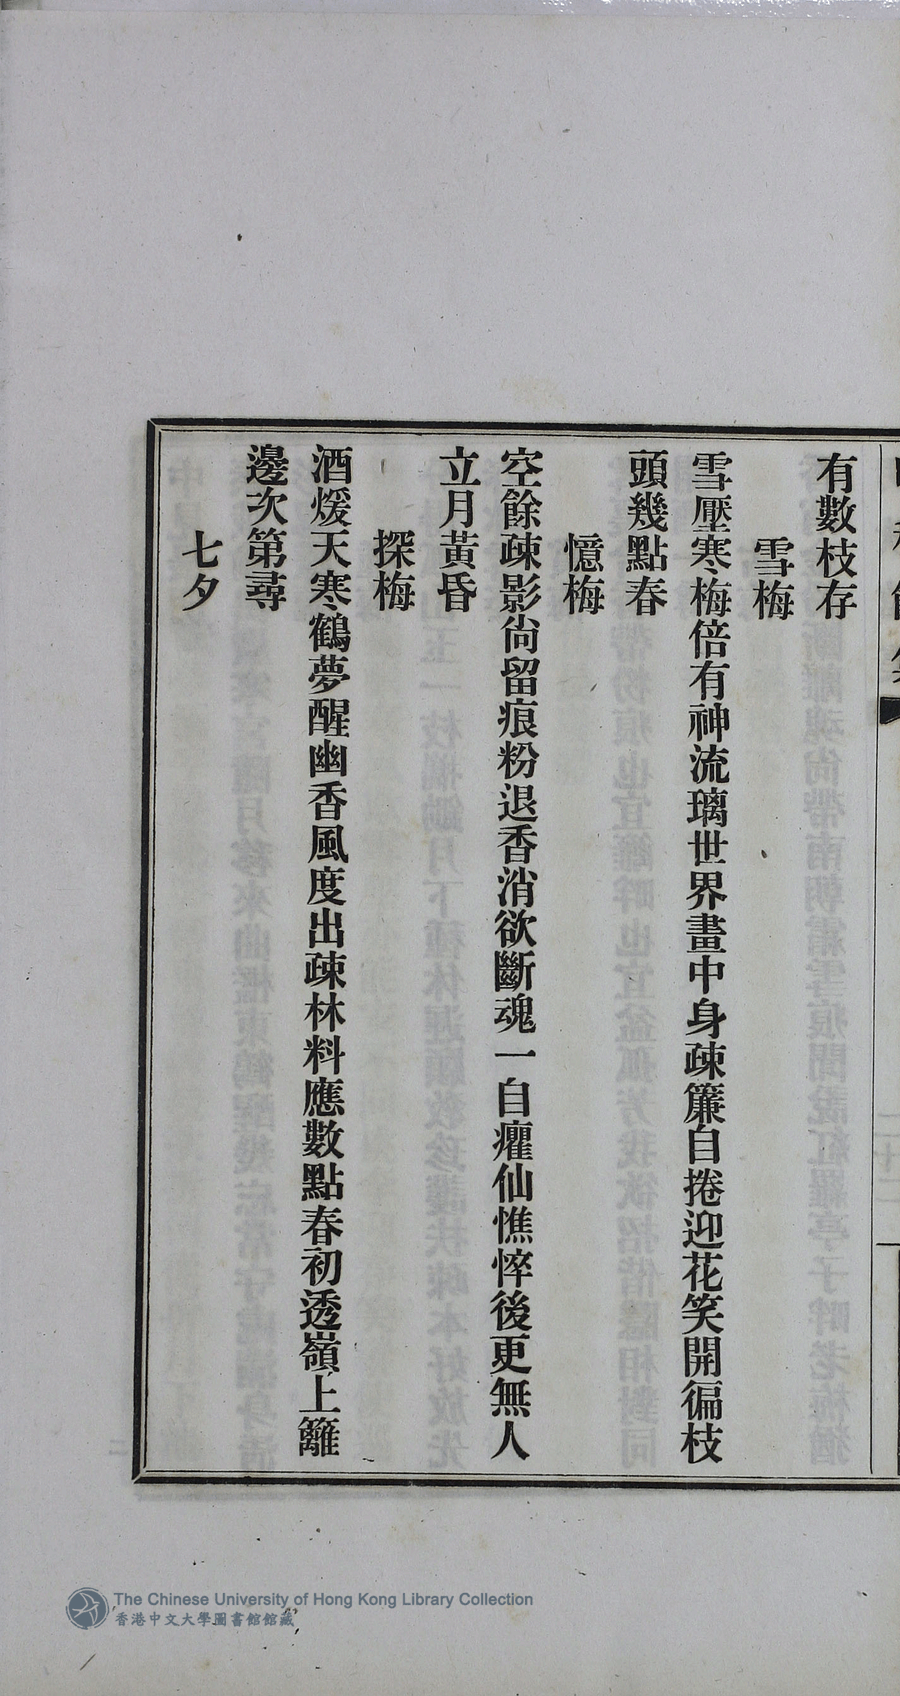 有數枝存
雪梅
雪壓寒梅倍有神流璃世界畫中身疎簾自捲迎花笑開徧枝
頭幾點春
憶梅
空餘疎影尙留痕粉退香消欲斷魂一自癯仙憔悴後更無人
立月黃昏
探梅
酒煖天寒鶴夢醒幽香風度出疎林料應數點春初透嶺上籬
邊次第尋
七夕
The Chinese University of Hong Kong Library Collection
香港中文大學圖書館館藏